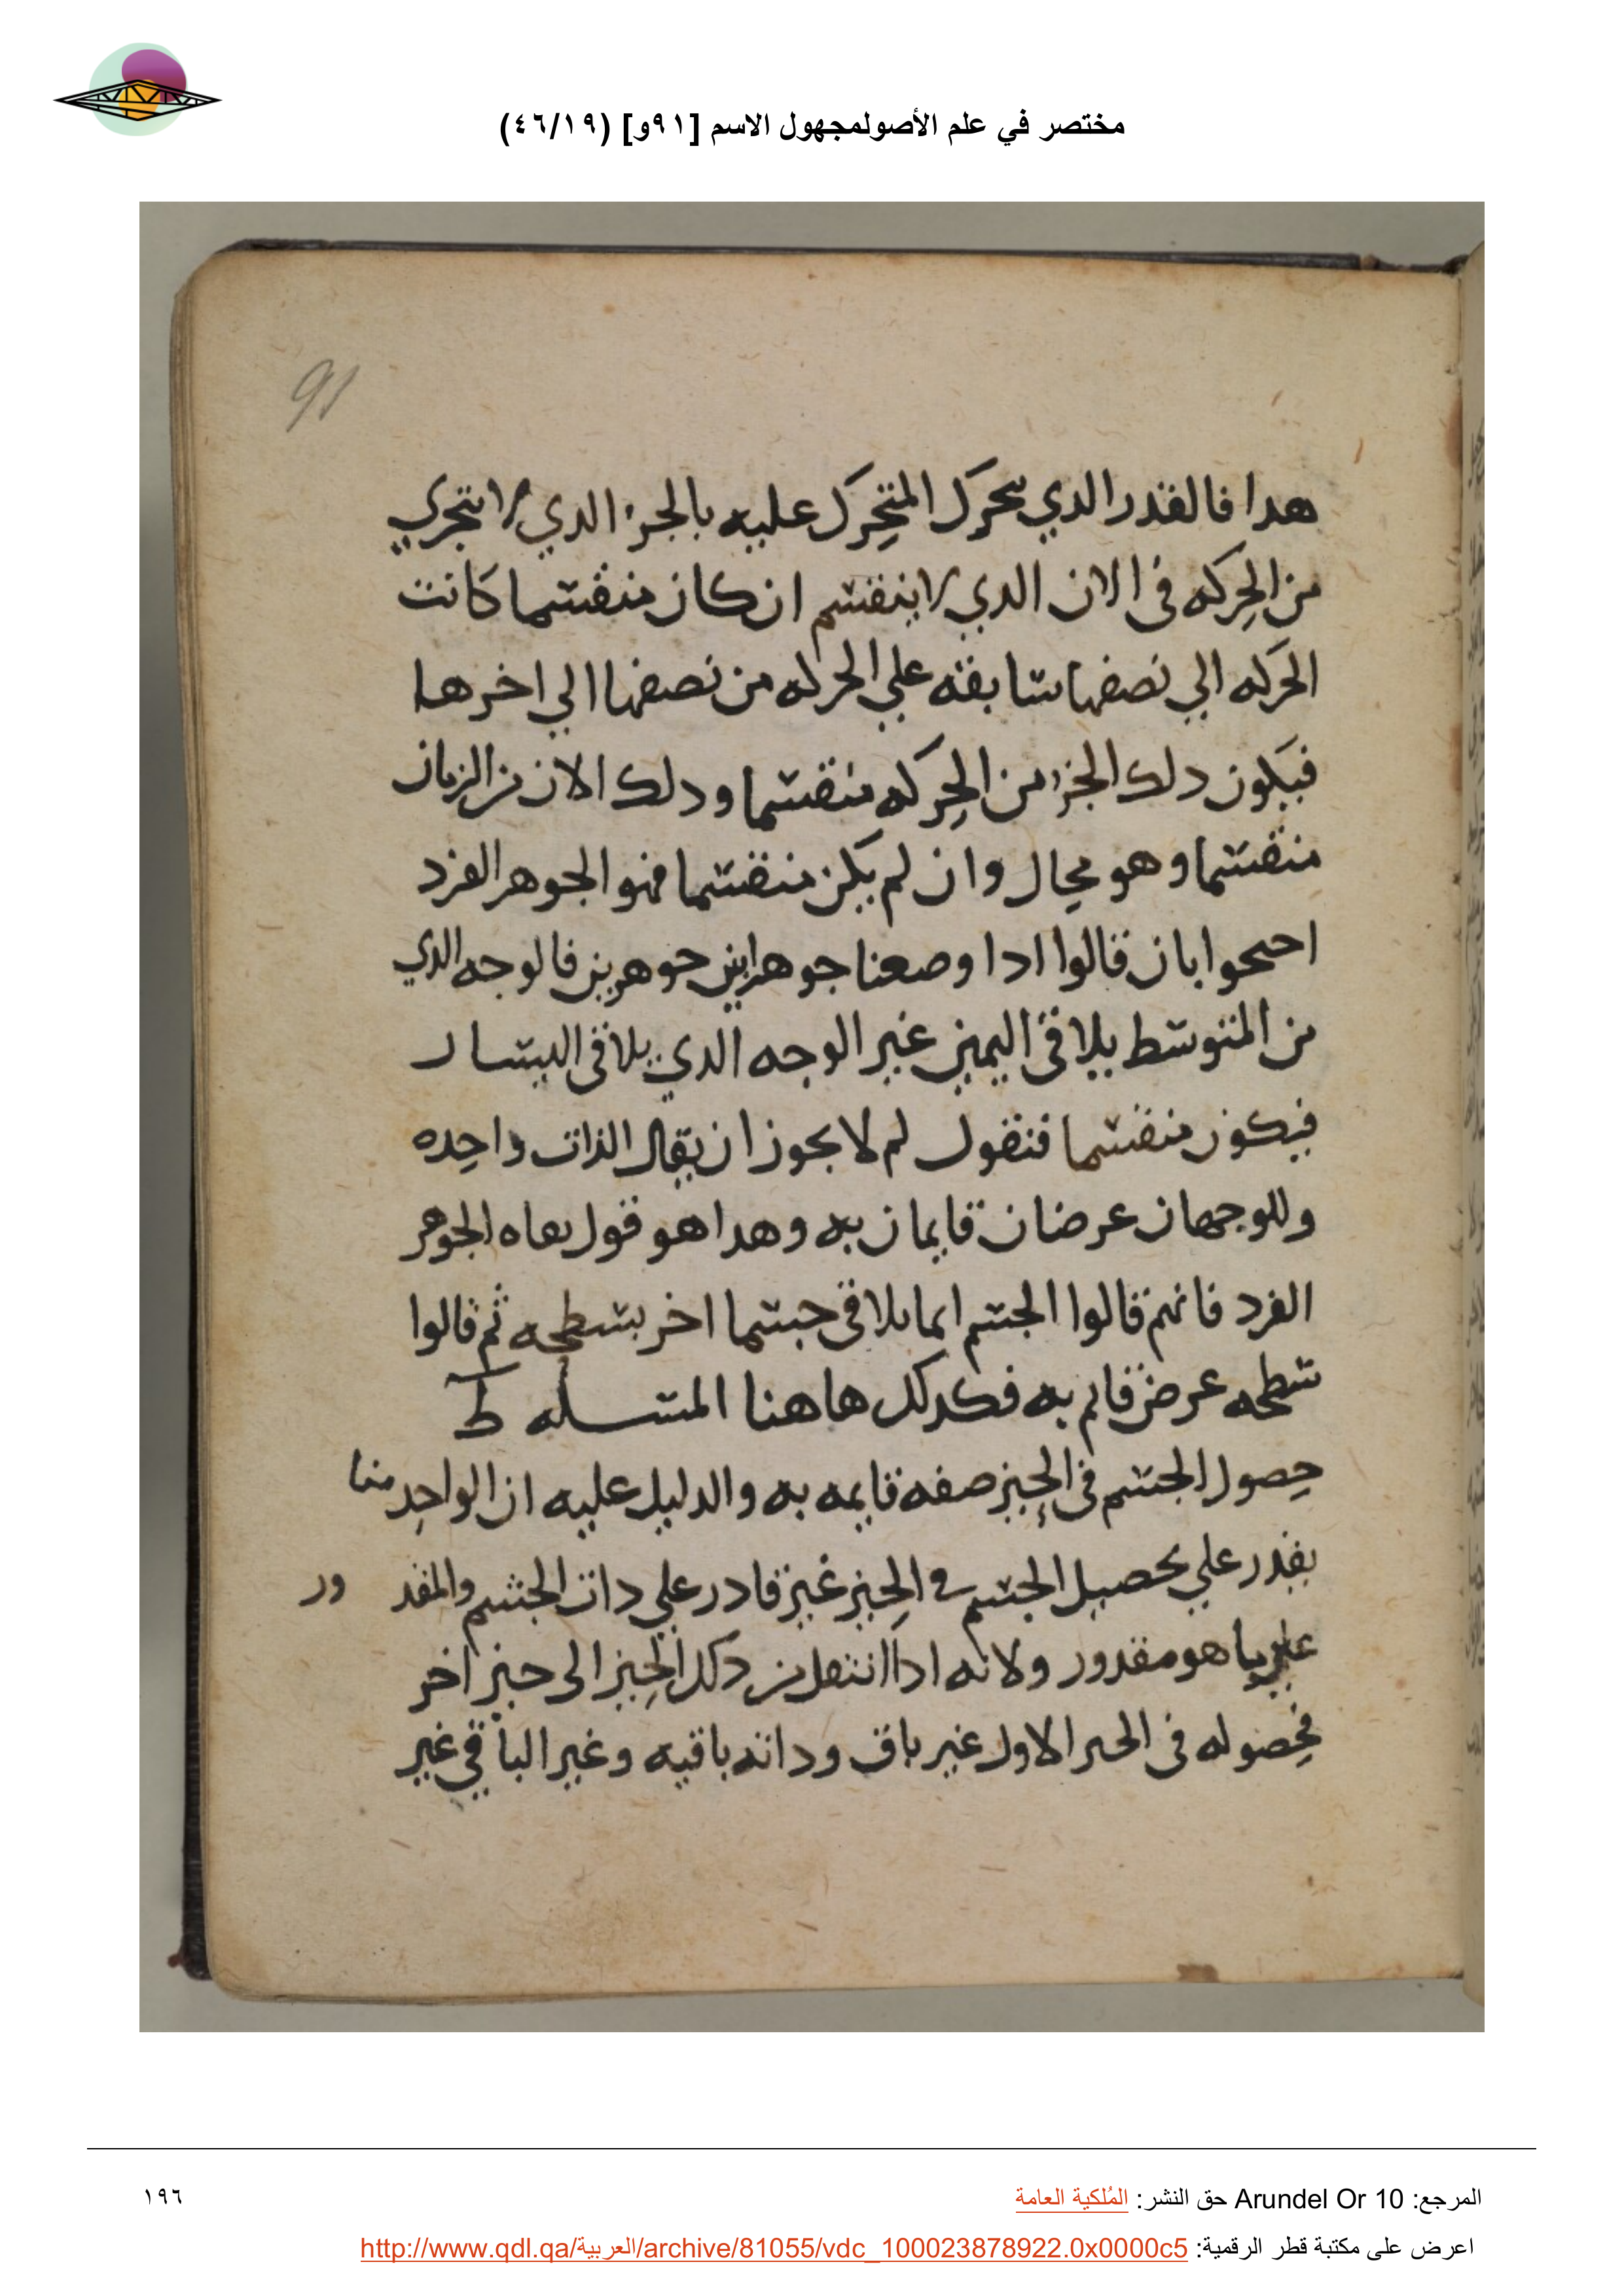 مختصر في علم الأصولمجهول الاسم [٩١و] (٤٦/١٩)
91
هدا فالقدر الدي يحرك المتحرك عليه بالجزء الدي لا يتجزي
من الحركه فى الان الدي لا ينقسم ان كان منقسما كانت
الحركه الي نصفها سابقه علي الحركه من نصفها الي اخرها
فيكون دلك الجزء من الحركه منقسما ودلك الان من الزمان
منقسما وهو محال وان لم يكن منقسما فهو الجوهر الفرد
احتجوا بان قالوا ادا وضعنا جوهرا بين جوهرين فالوجه الدي
من المتوسط يلاقى اليمين غير الوجه الدي يلاقى اليسار
فيكون منقسما فنقول لم لا يجوز ان يقال الذات واحده
وللوجهان عرضان قايمان به وهدا هو قول نفاه الجوهر
الفرد فانهم قالوا الجسم انما يلاقى جسما اخر بسطحه ثم قالوا
سطحه عرض قايم به فكدلك هاهنا المسله ط
حصول الجسم فى الحيز صفه قايمه به والدليل عليه ان الواحد منا
يقدر علي تحصيل الجسم في الحيز غير قادر علي دات الجسم والمقدور
علي ما هو مقدور ولانه ادا انتقل من دلك الحيز الى حيز اخر
فحصوله فى الحيز الاول غير باق وداته باقيه وغير الباقي غير
المرجع: Arundel Or 10 حق النشر: المُلكية العامة
١٩٦
اعرض على مكتبة قطر الرقمية: http://www.qdl.qa/العربية/archive/81055/vdc_100023878922.0x0000c5